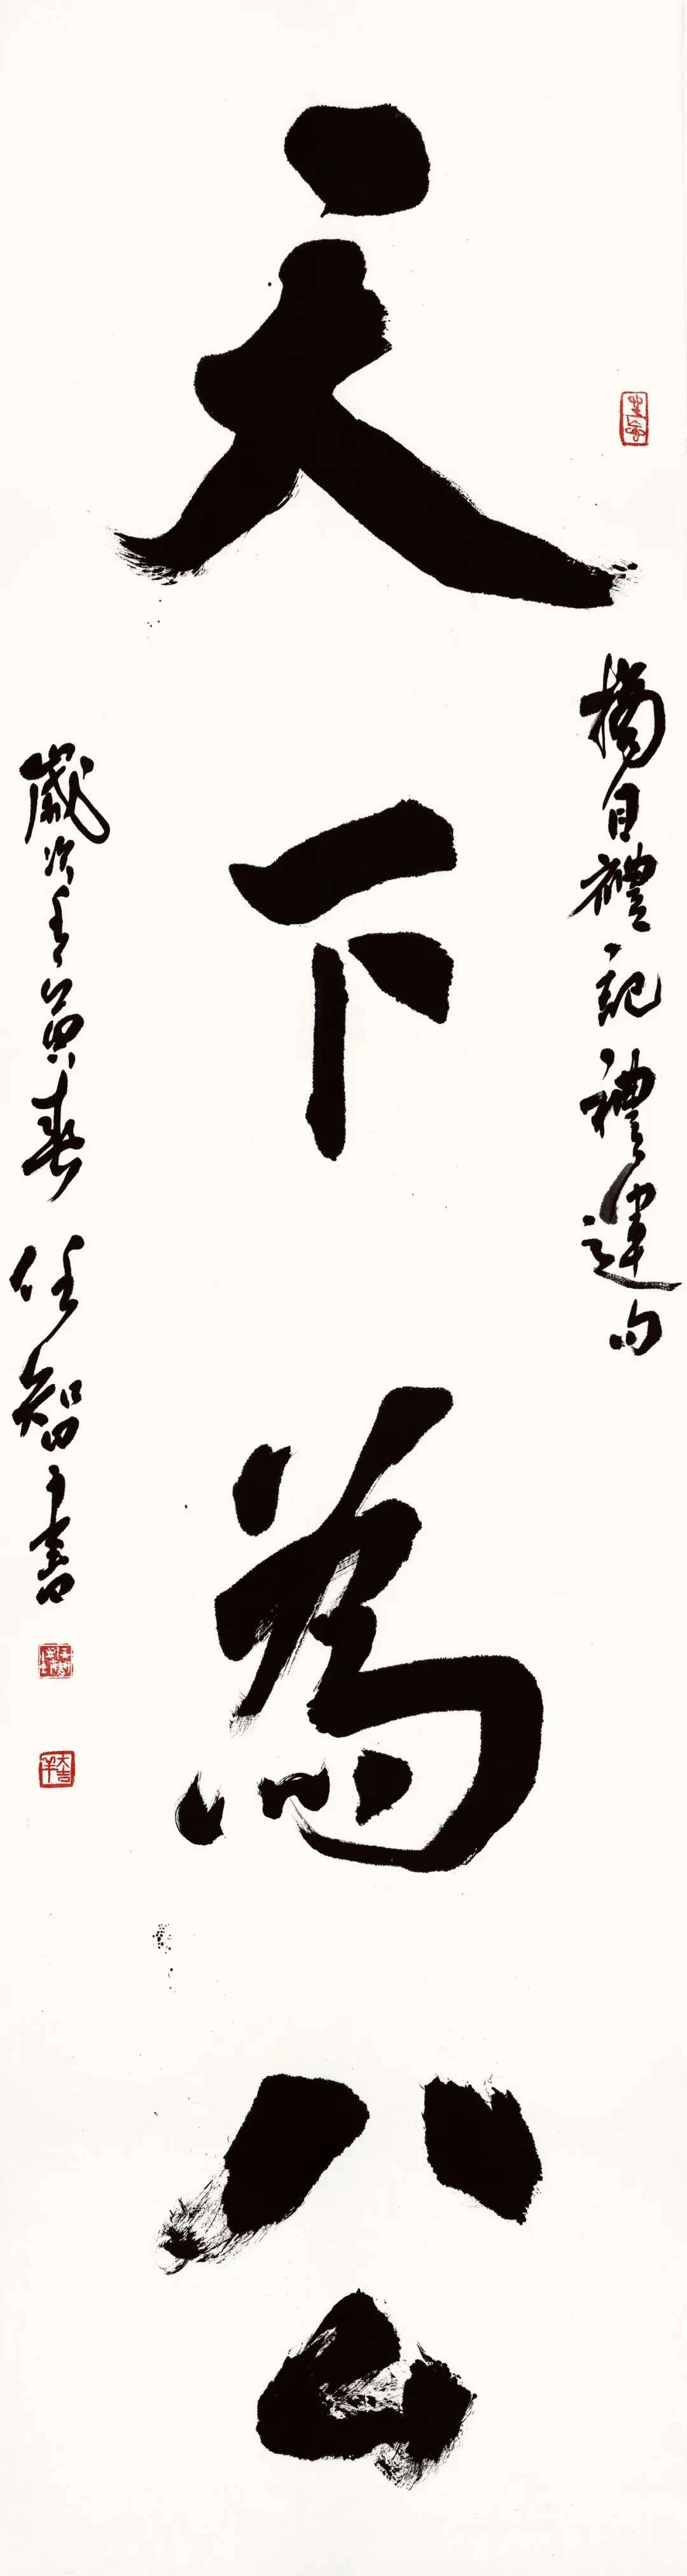 天下為公
摘自禮記禮運句
歲次壬寅春 任智才書